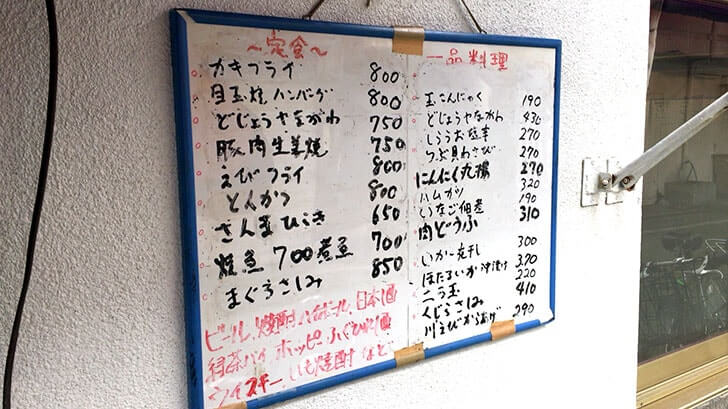 ～定食～
カキフライ 800
目玉焼ハンバーグ 800
どじょうやながわ 750
豚肉生姜焼 750
えびフライ 800
とんかつ 800
さんまひらき 650
焼魚 700 煮魚 700
まぐろさしみ 850
ビール、焼酎ハイボール、日本酒
緑茶ハイ ホッピー ふぐひれ酒
ウイスキー、いも焼酎 など
一品料理
玉こんにゃく 190
どじょうやながわ 430
しらうお 270
つぶ貝わさび 270
にんにく丸揚 270
ハムカツ 320
いなご佃煮 190
肉どうふ 310
いか一夜干し 300
ほたるいか沖漬け 320
ニラ玉 220
くじらさしみ 410
川えびからあげ 290